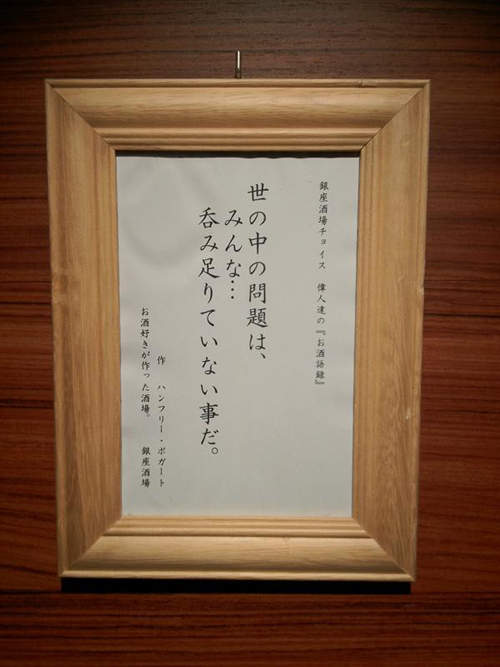 銀座酒場チョイス 偉人達の『お酒語録』
世の中の問題は、
みんな…
呑み足りていない事だ。
作 ハンフリー・ボガート
お酒好きが作った酒場。 銀座酒場